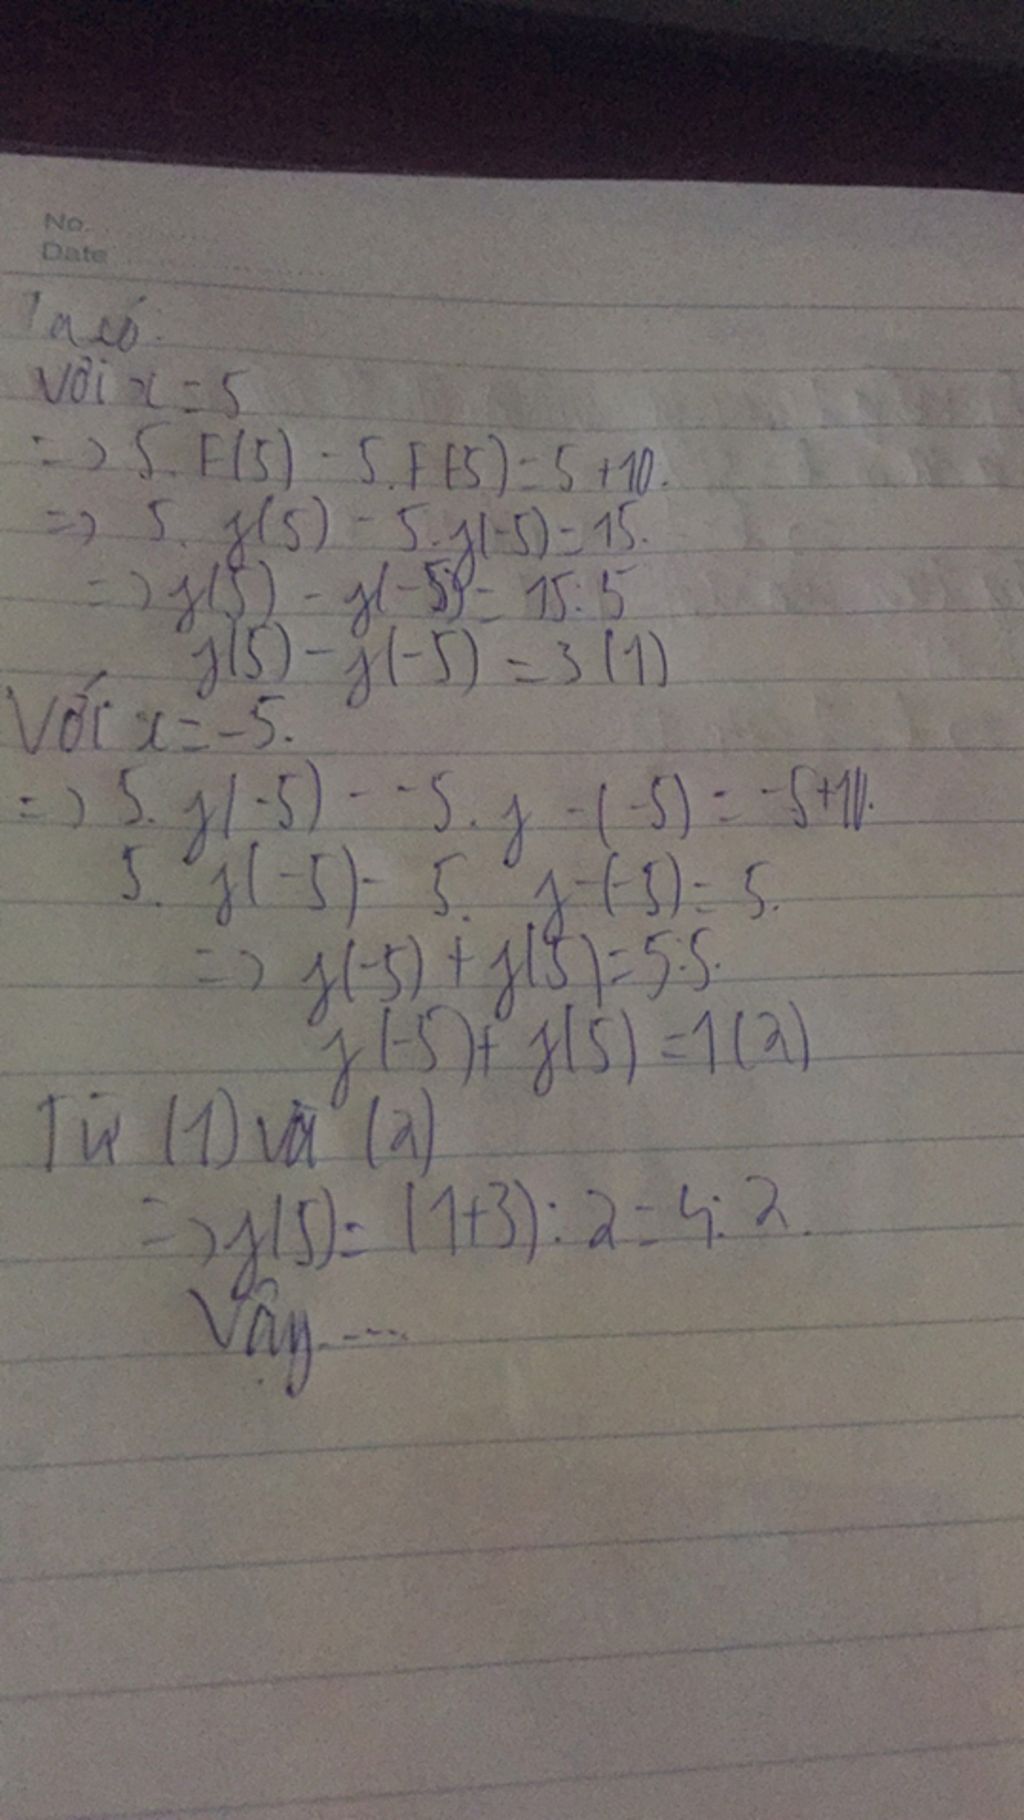 No.
Date
Ta có:
Với x = 5
=> 5. F(5) - 5. F(-5) = 5 + 10.
=> 5. f(5) - 5. f(-5) = 15.
=> f(5) - f(-5) = 15 : 5
f(5) - f(-5) = 3 (1)
Với x = -5.
=> 5. f(-5) - -5. f -(-5) = -5 + 10.
5. f(-5) - 5. f -(-5) = 5.
=> f(-5) + f(5) = 5:5.
f(-5) + f(5) = 1 (2)
Từ (1) và (2)
=> f(5) = (1+3) : 2 = 4 : 2.
Vậy ....